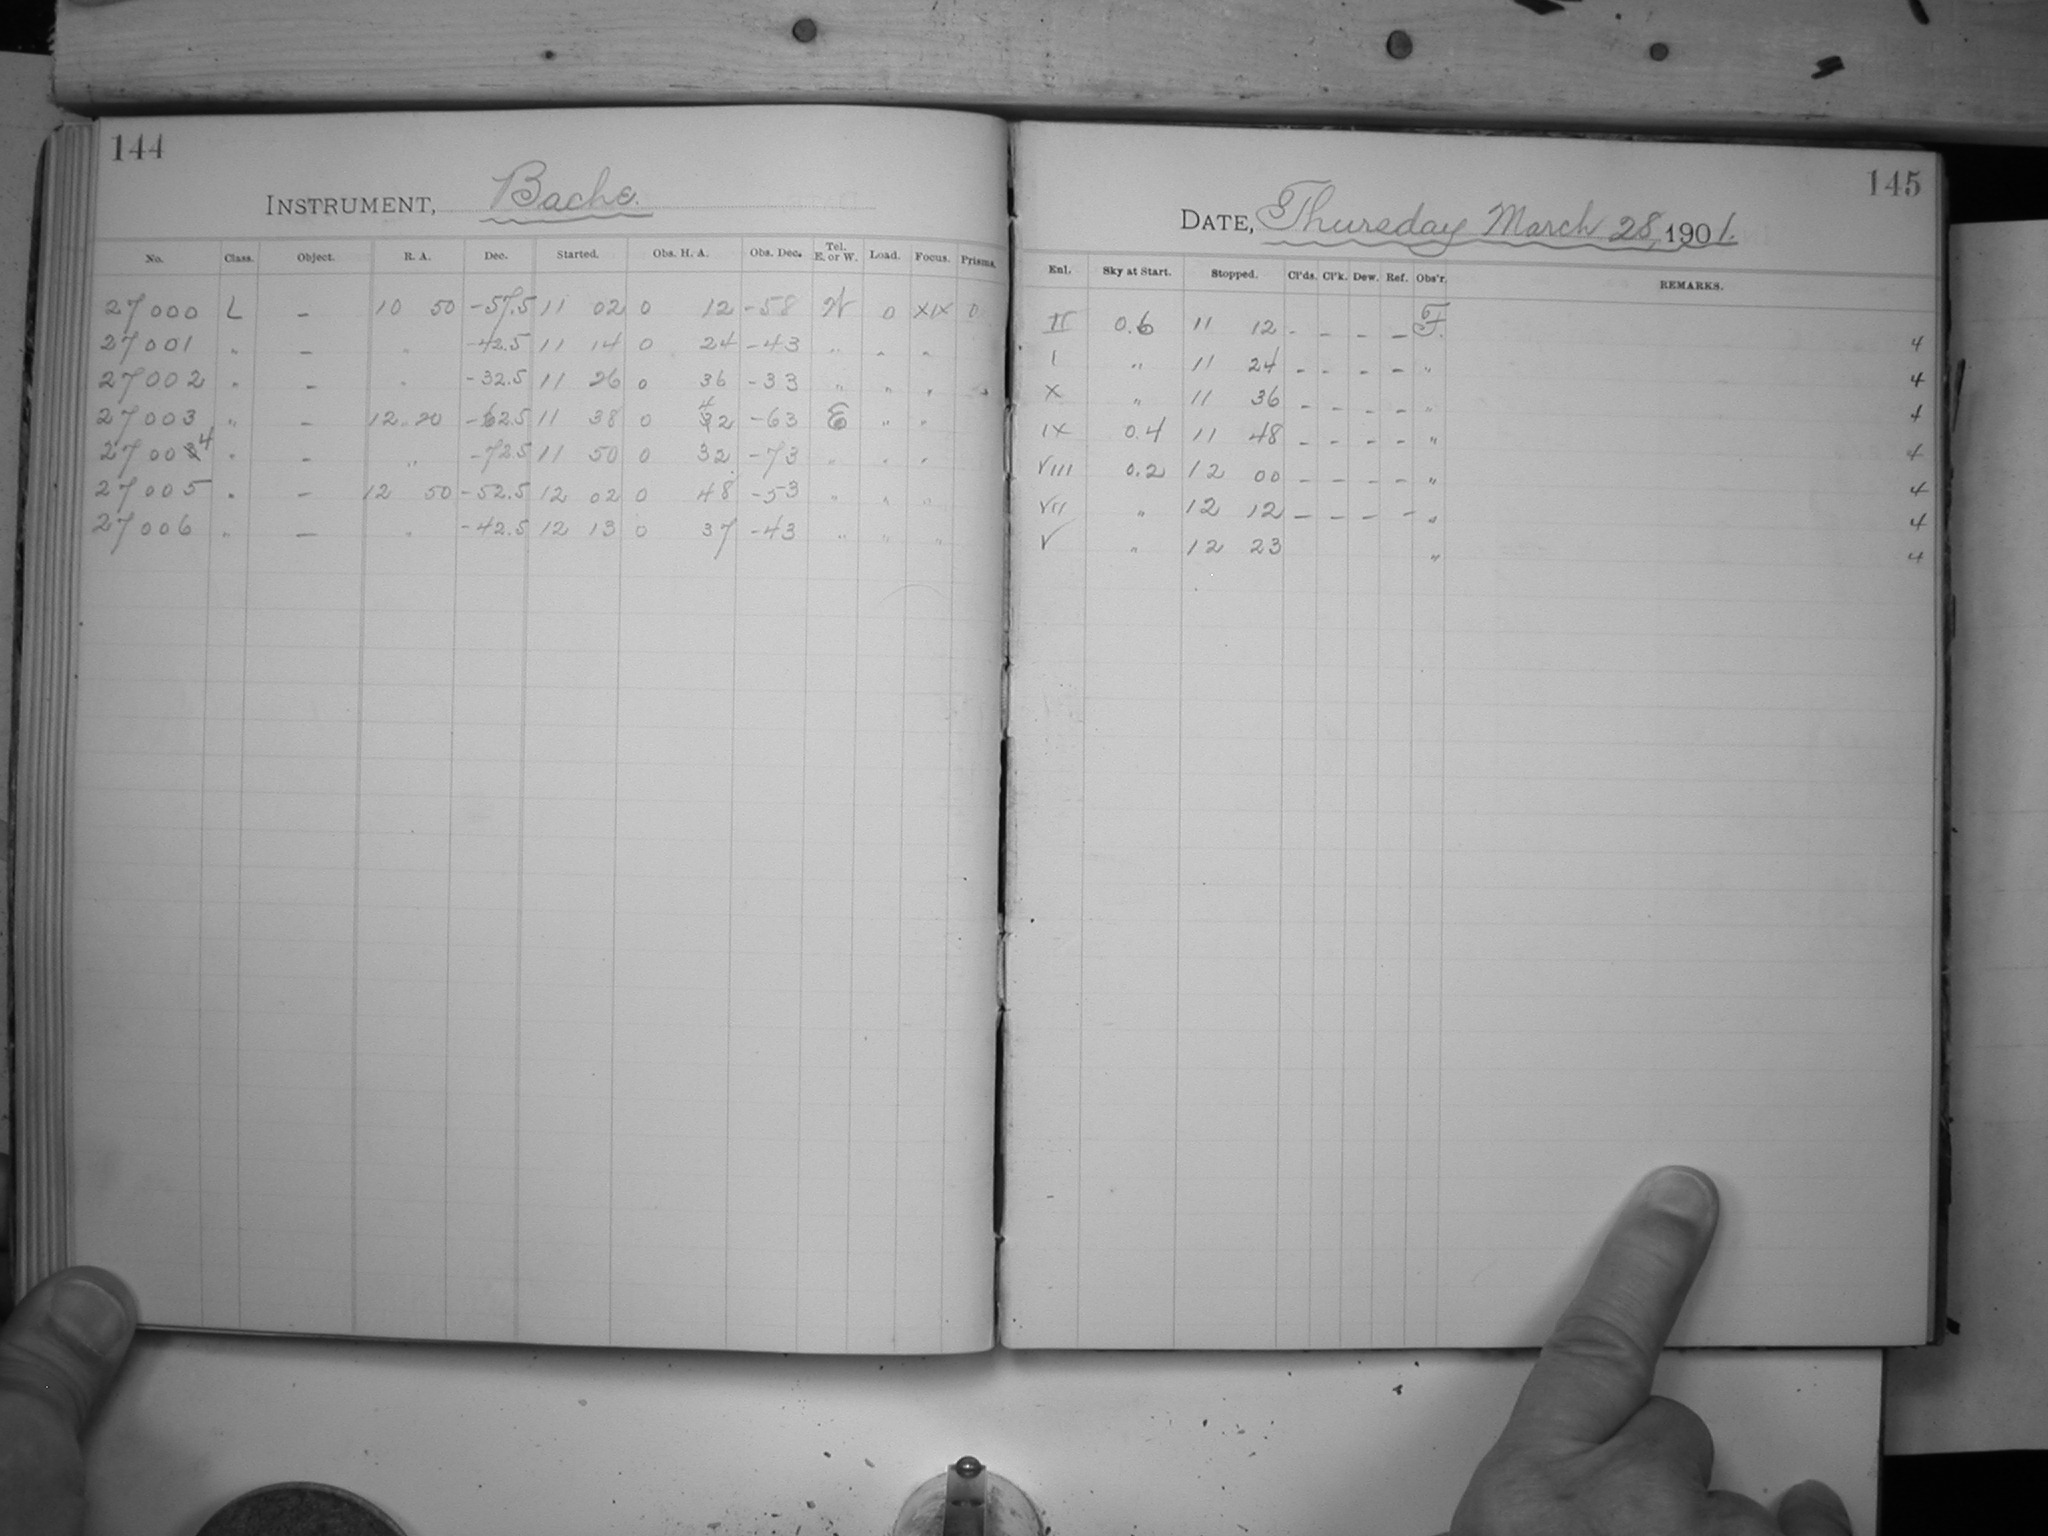 144
INSTRUMENT, Bache.
No. Class. Object. R. A. Dec. Started. Obs. H. A. Obs. Dec. Tel. E. or W. Load. Focus. Prisms.
27000 L – 10 50 -57.5 11 02 0 12 -58 W 0 XIX 0
27001 " – " -42.5 11 14 0 24 -43 " " "
27002 " – " -32.5 11 26 0 36 -33 " " " "
27003 " – 12 20 -62.5 11 38 0 42 -63 E " "
27004 " – " -72.5 11 50 0 32 -73 " " "
27005 " – 12 50 -52.5 12 02 0 48 -53 " " "
27006 " – " -42.5 12 13 0 37 -43 " " "
145
DATE, Thursday March 28, 1901.
Enl. Sky at Start. Stopped. Cl'ds. Cl'k. Dew. Ref. Obs'r. REMARKS.
II 0.6 11 12 - - - - F. 4
I " 11 24 - - - - " 4
X " 11 36 - - - - " 4
IX 0.4 11 48 - - - - " 4
VIII 0.2 12 00 - - - - " 4
VII " 12 12 - - - - " 4
V " 12 23 " 4